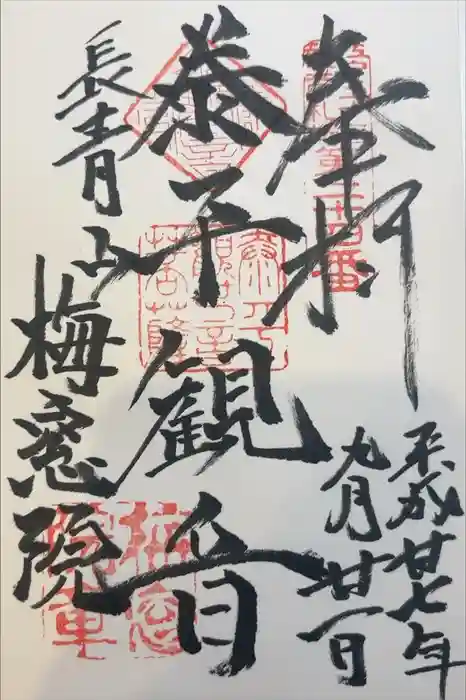 奉拝
平成廿七年
九月廿一日
泰平観音
長青山
梅窓院